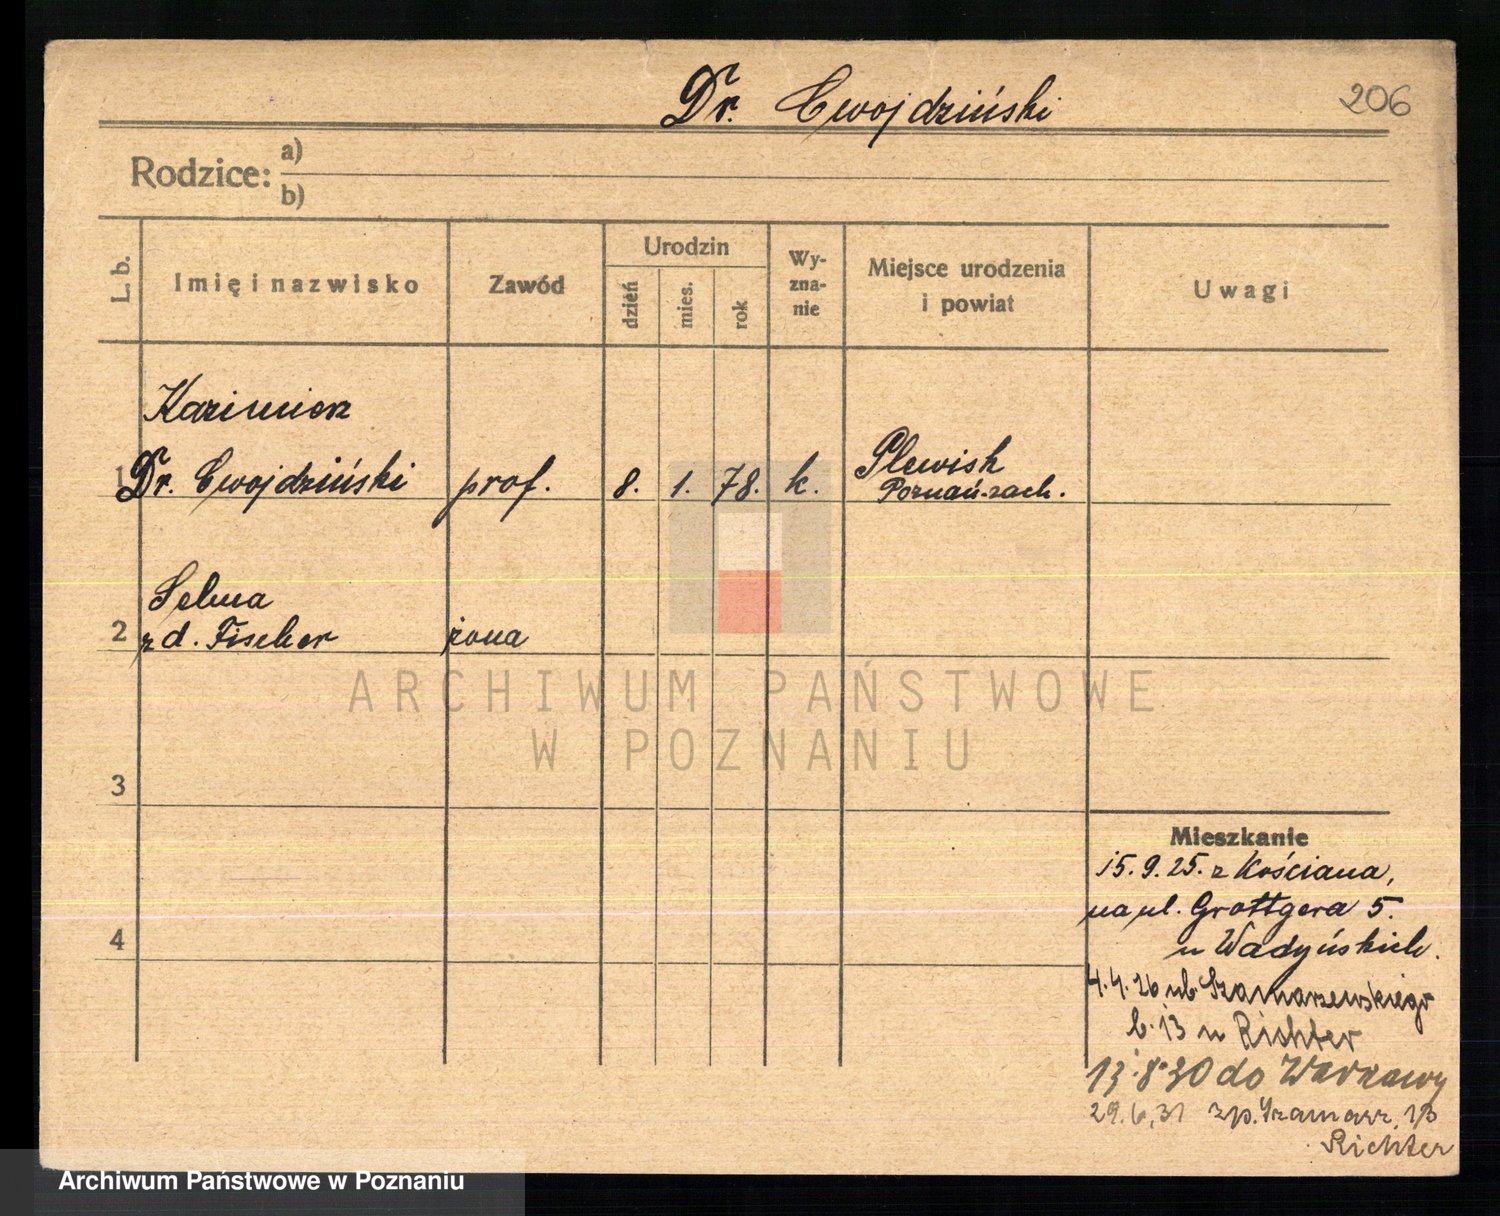 Dr. Cwojdziński
206
Rodzice: a)
b)
L. b.
Imię i nazwisko
Zawód
Urodzin
dzień
mies.
rok
Wy-
zna-
nie
Miejsce urodzenia
i powiat
Uwagi
Kazimierz
1 Dr. Cwojdziński prof. 8. 1. 78. k. Plewisk
Poznań-zach.
Selma
2 zd. Fischer żona
3
4
ARCHIWUM PAŃSTWOWE
W POZNANIU
Mieszkanie
15.9.25. z Kościana,
na ul. Grottgera 5.
u Wadyńskich.
4.4.26 ul. Szamarzewskiego
b. 13 u Richter
13.8.30 do Warszawy
29.6.31 zp. Szamarz. 13
Richter
Archiwum Państwowe w Poznaniu